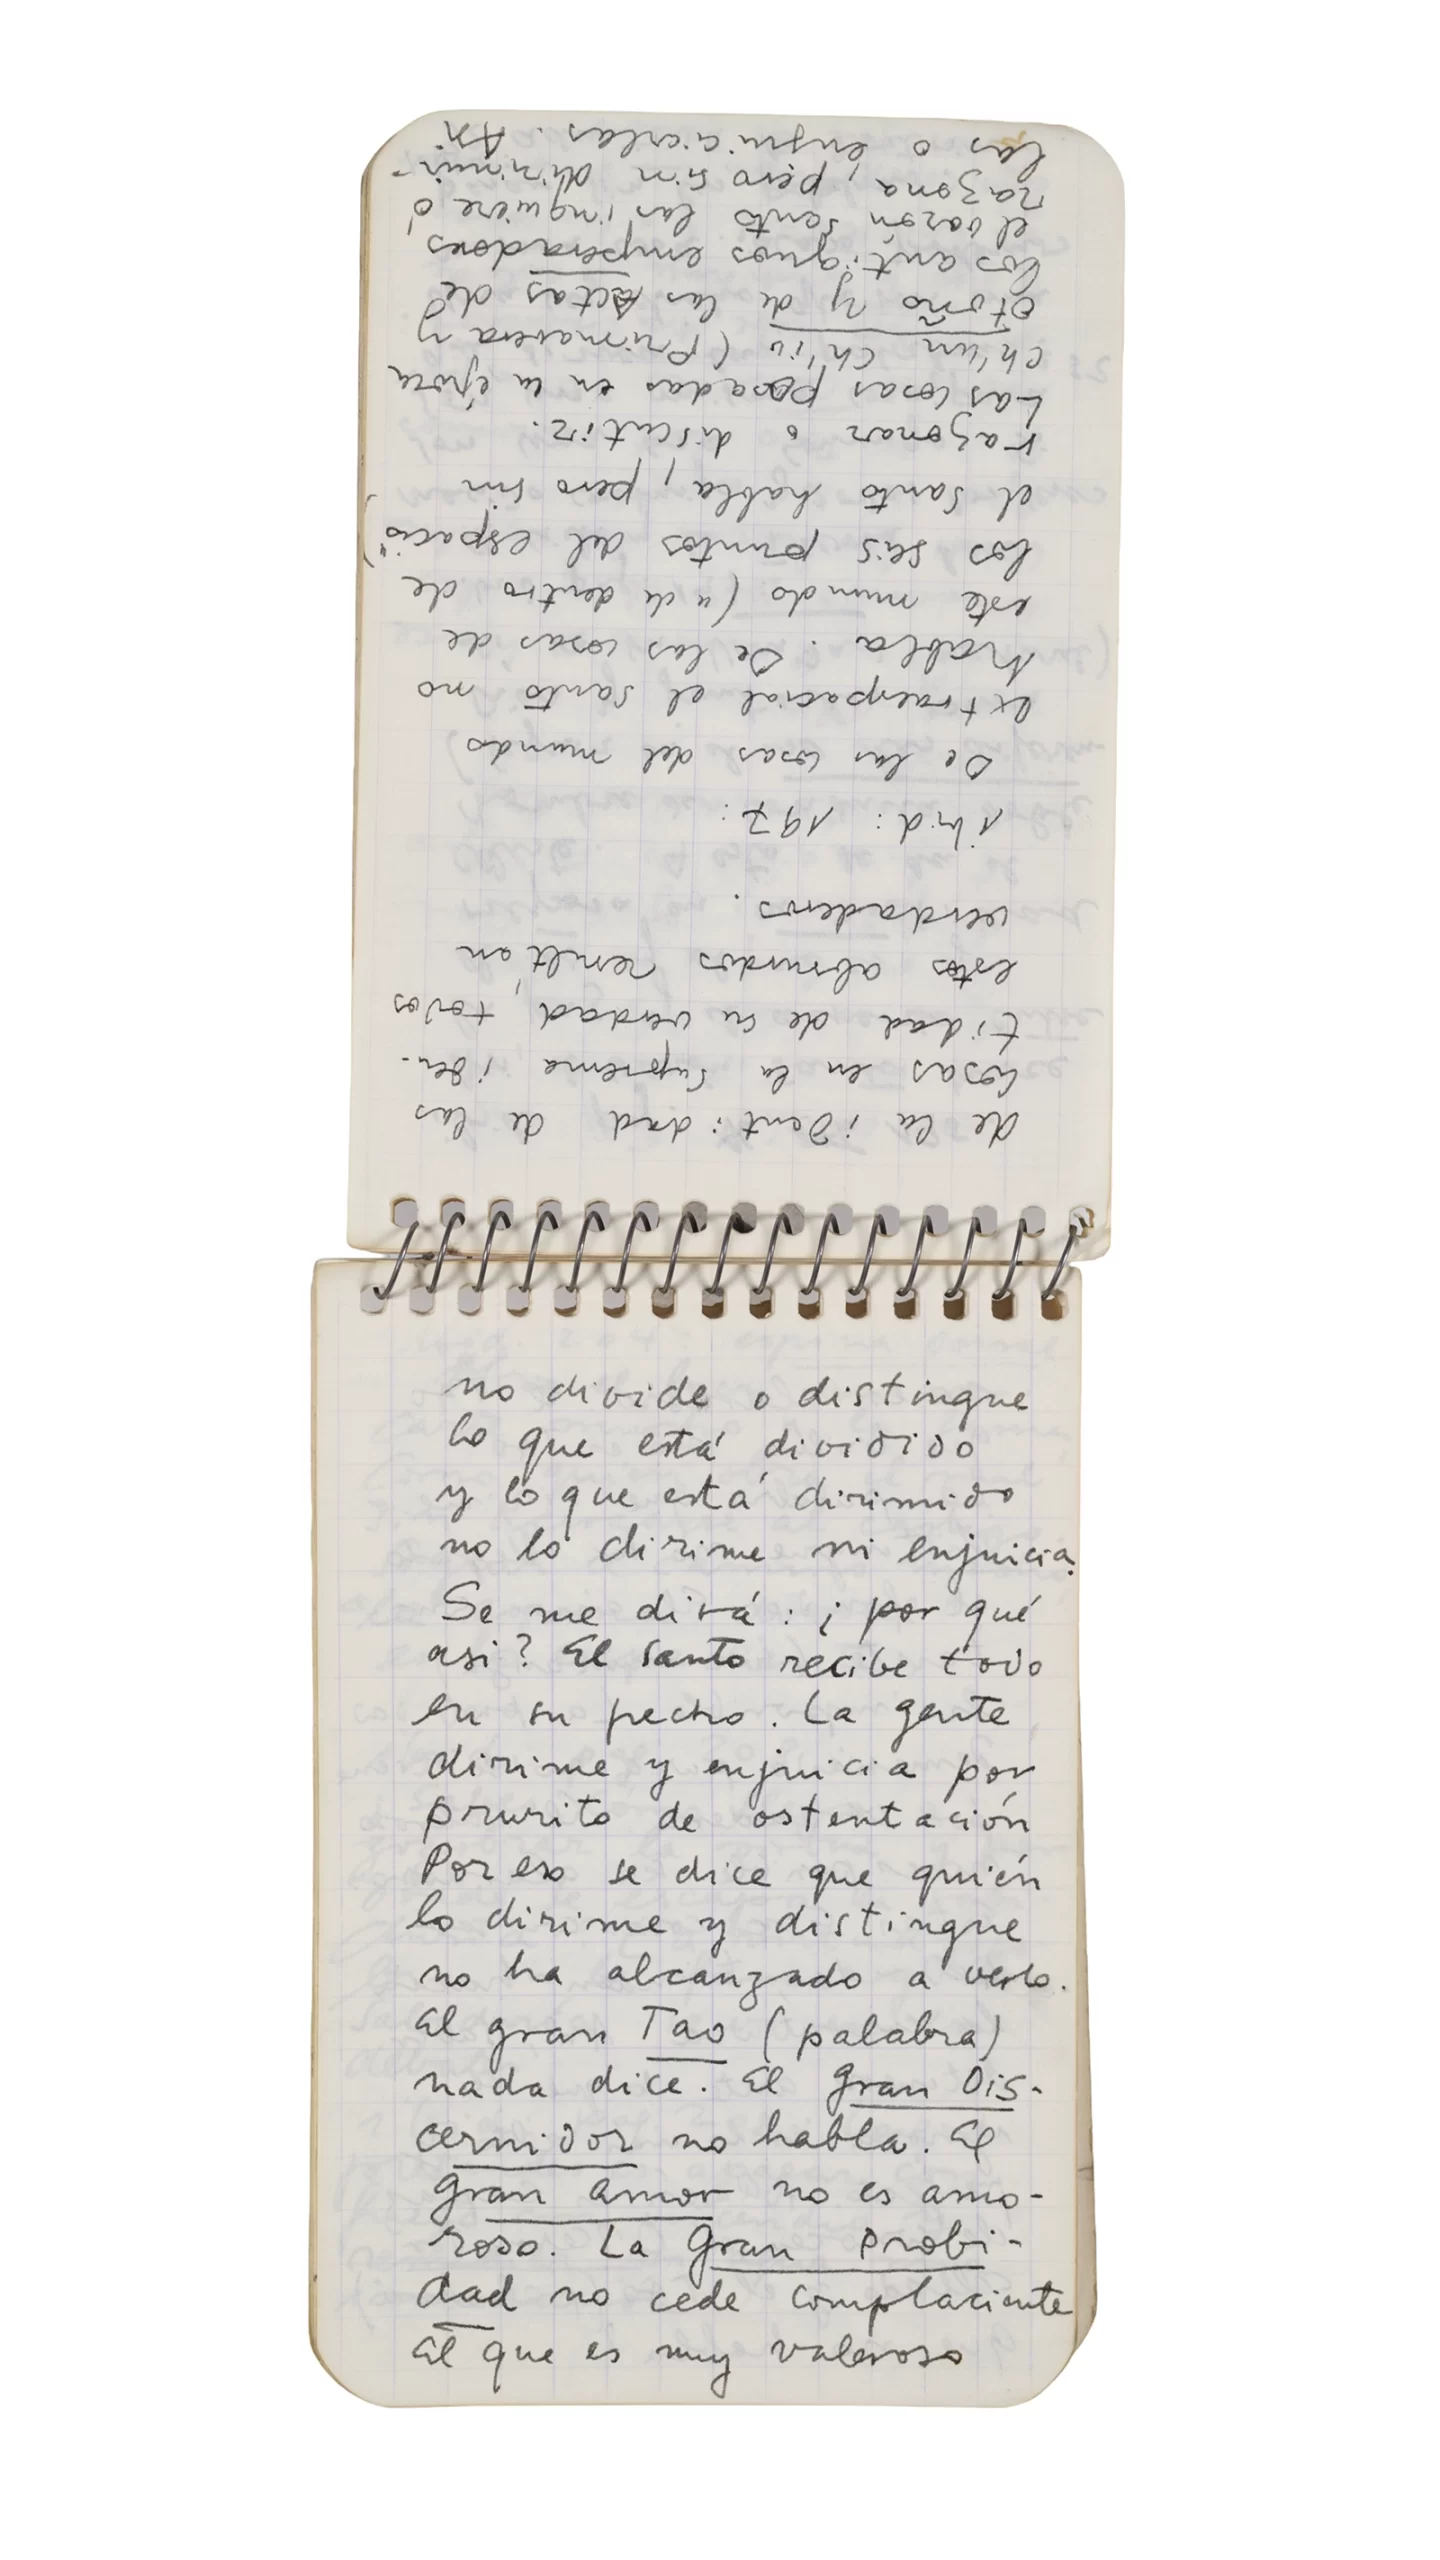 de la identidad de las
cosas en la suprema iden-
tidad de su verdad, todos
estos absurdos resultan
verdaderos.
ibid: 197:
De las cosas del mundo
extraespacial el santo no
habla. De las cosas de
este mundo (u de dentro de
los seis puntos del espacio)
el santo habla, pero sin
razonar o discutir.
Las cosas pasadas en la época
Ch'un Ch'iu (Primavera y
Otoño y de las Actas de
los antiguos emperadores
el varón santo las inquiere ó
razona, pero sin dirimir-
las o enjuiciarlas. Así
no divide o distingue
lo que está dividido
y lo que está dirimido
no lo dirime ni enjuicia.
Se me dirá: ¿por qué
asi? El santo recibe todo
en su pecho. La gente
dirime y enjuicia por
prurito de ostentación
Por eso se dice que quién
lo dirime y distingue
no ha alcanzado a verlo.
El gran Tao (palabra)
nada dice. El gran Dis-
cernidor no habla. El
gran amor no es amo-
roso. La Gran probi-
dad no cede complaciente
El que es muy valeroso